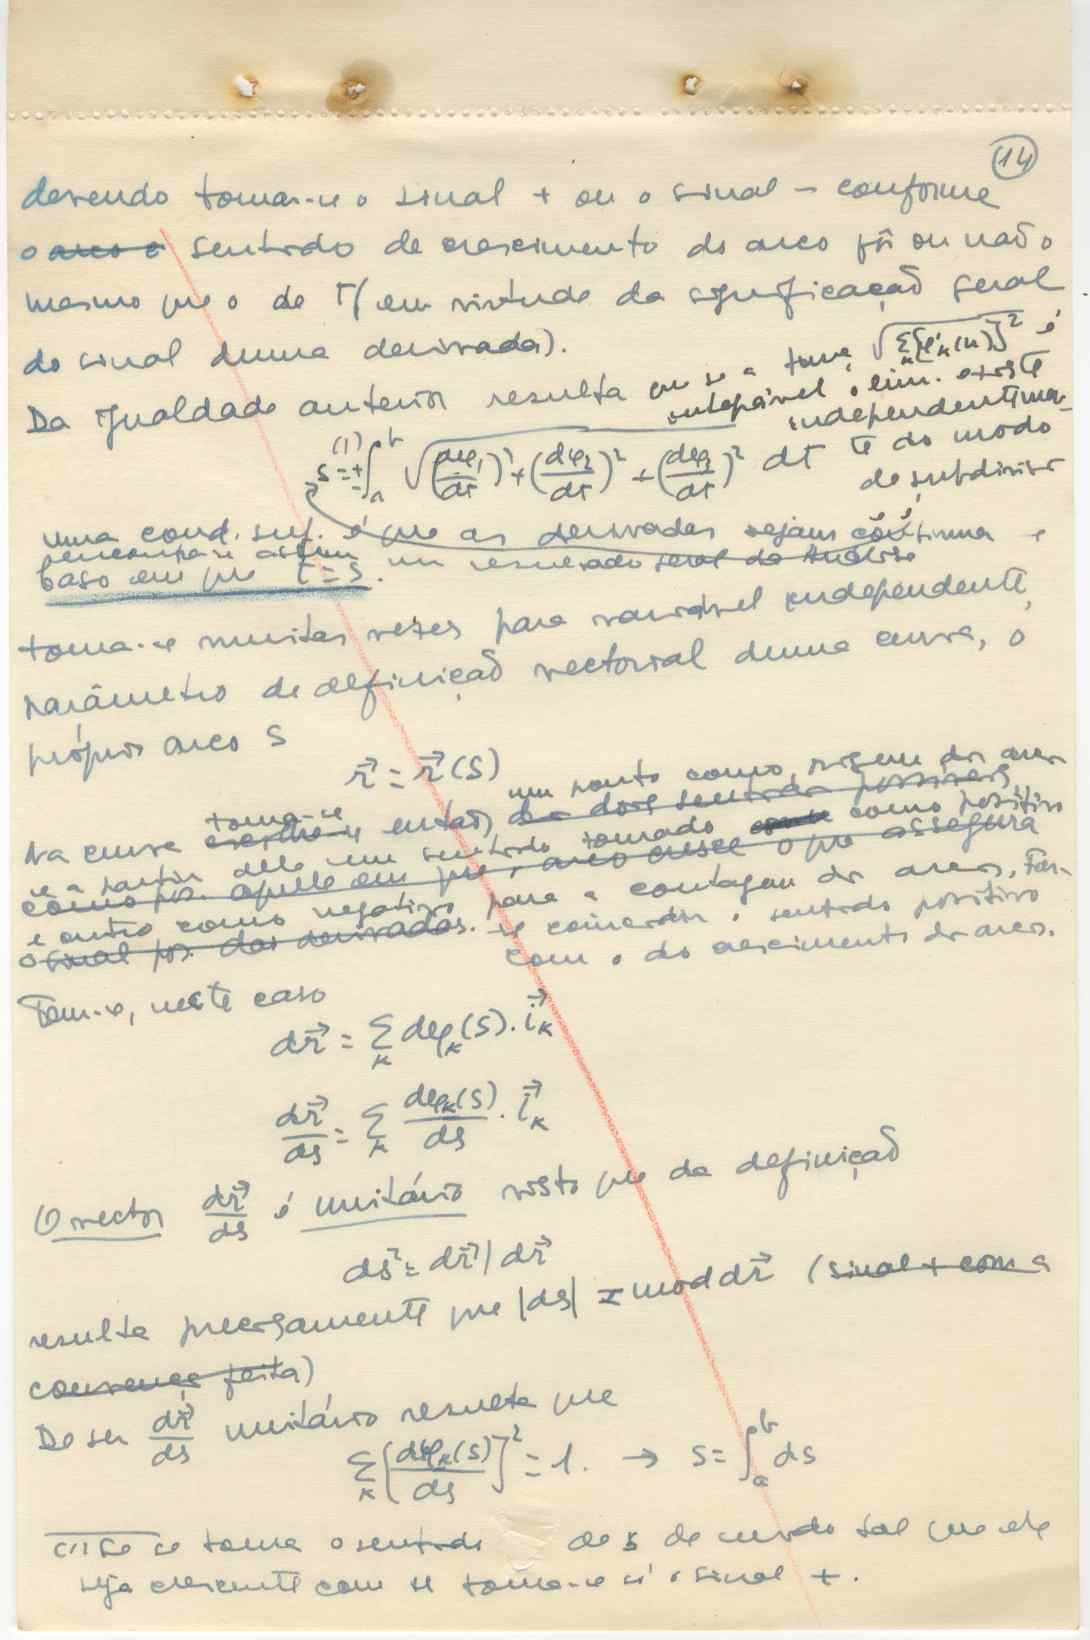 14
devendo tomar-se o sinal + ou o sinal - conforme
o arco o sentido de crescimento do arco fôr ou não o
mesmo que o de τ (em virtude da significação geral
do sinal duma derivada).
Da igualdade anterior resulta que se a √Σκ[φ'κ(u)]² é
integrável o lim. existe
independentemen-
te do modo
de subdivisão
(1)
s = ± ∫ₐᵇ √(dφ₁/dτ)² + (dφ₂/dτ)² + (dφ₃/dτ)² dτ
uma cond. suf. é que as derivadas sejam contínuas e
um resultado geral da Análise
caso em que τ = s.
toma-se muitas vezes para variável independente,
parâmetro de definição vectorial duma curva, o
próprio arco s
r⃗ = r⃗(s)
Na curva escolhe-se toma-se então, dos dois sentidos possíveis, um ponto como origem dos arcos
e a partir dele um sentido tomado como positivo
como pos. aquele em que o arco cresce o que assegura
e outro como negativo para a contagem dos arcos. Faz-
o sinal pos. das derivadas. se coincidir o sentido positivo
com o do crescimento dos arcos.
Tem-se, neste caso
dr⃗ = Σκ dφκ(s). i⃗κ
dr⃗/ds = Σκ dφκ(s)/ds . i⃗κ
O vector dr⃗/ds é unitário visto que da definição
ds² = dr⃗ | dr⃗
resulta precisamente que |ds| = mod dr⃗ (sinal + com a
convenção feita)
De ser dr⃗/ds unitário resulta que
Σκ [dφκ(s)/ds]² = 1. → s = ∫ₐᵇ ds
(1) Se se toma o sentido de s de modo tal que ele
seja crescente com u toma-se só o sinal +.